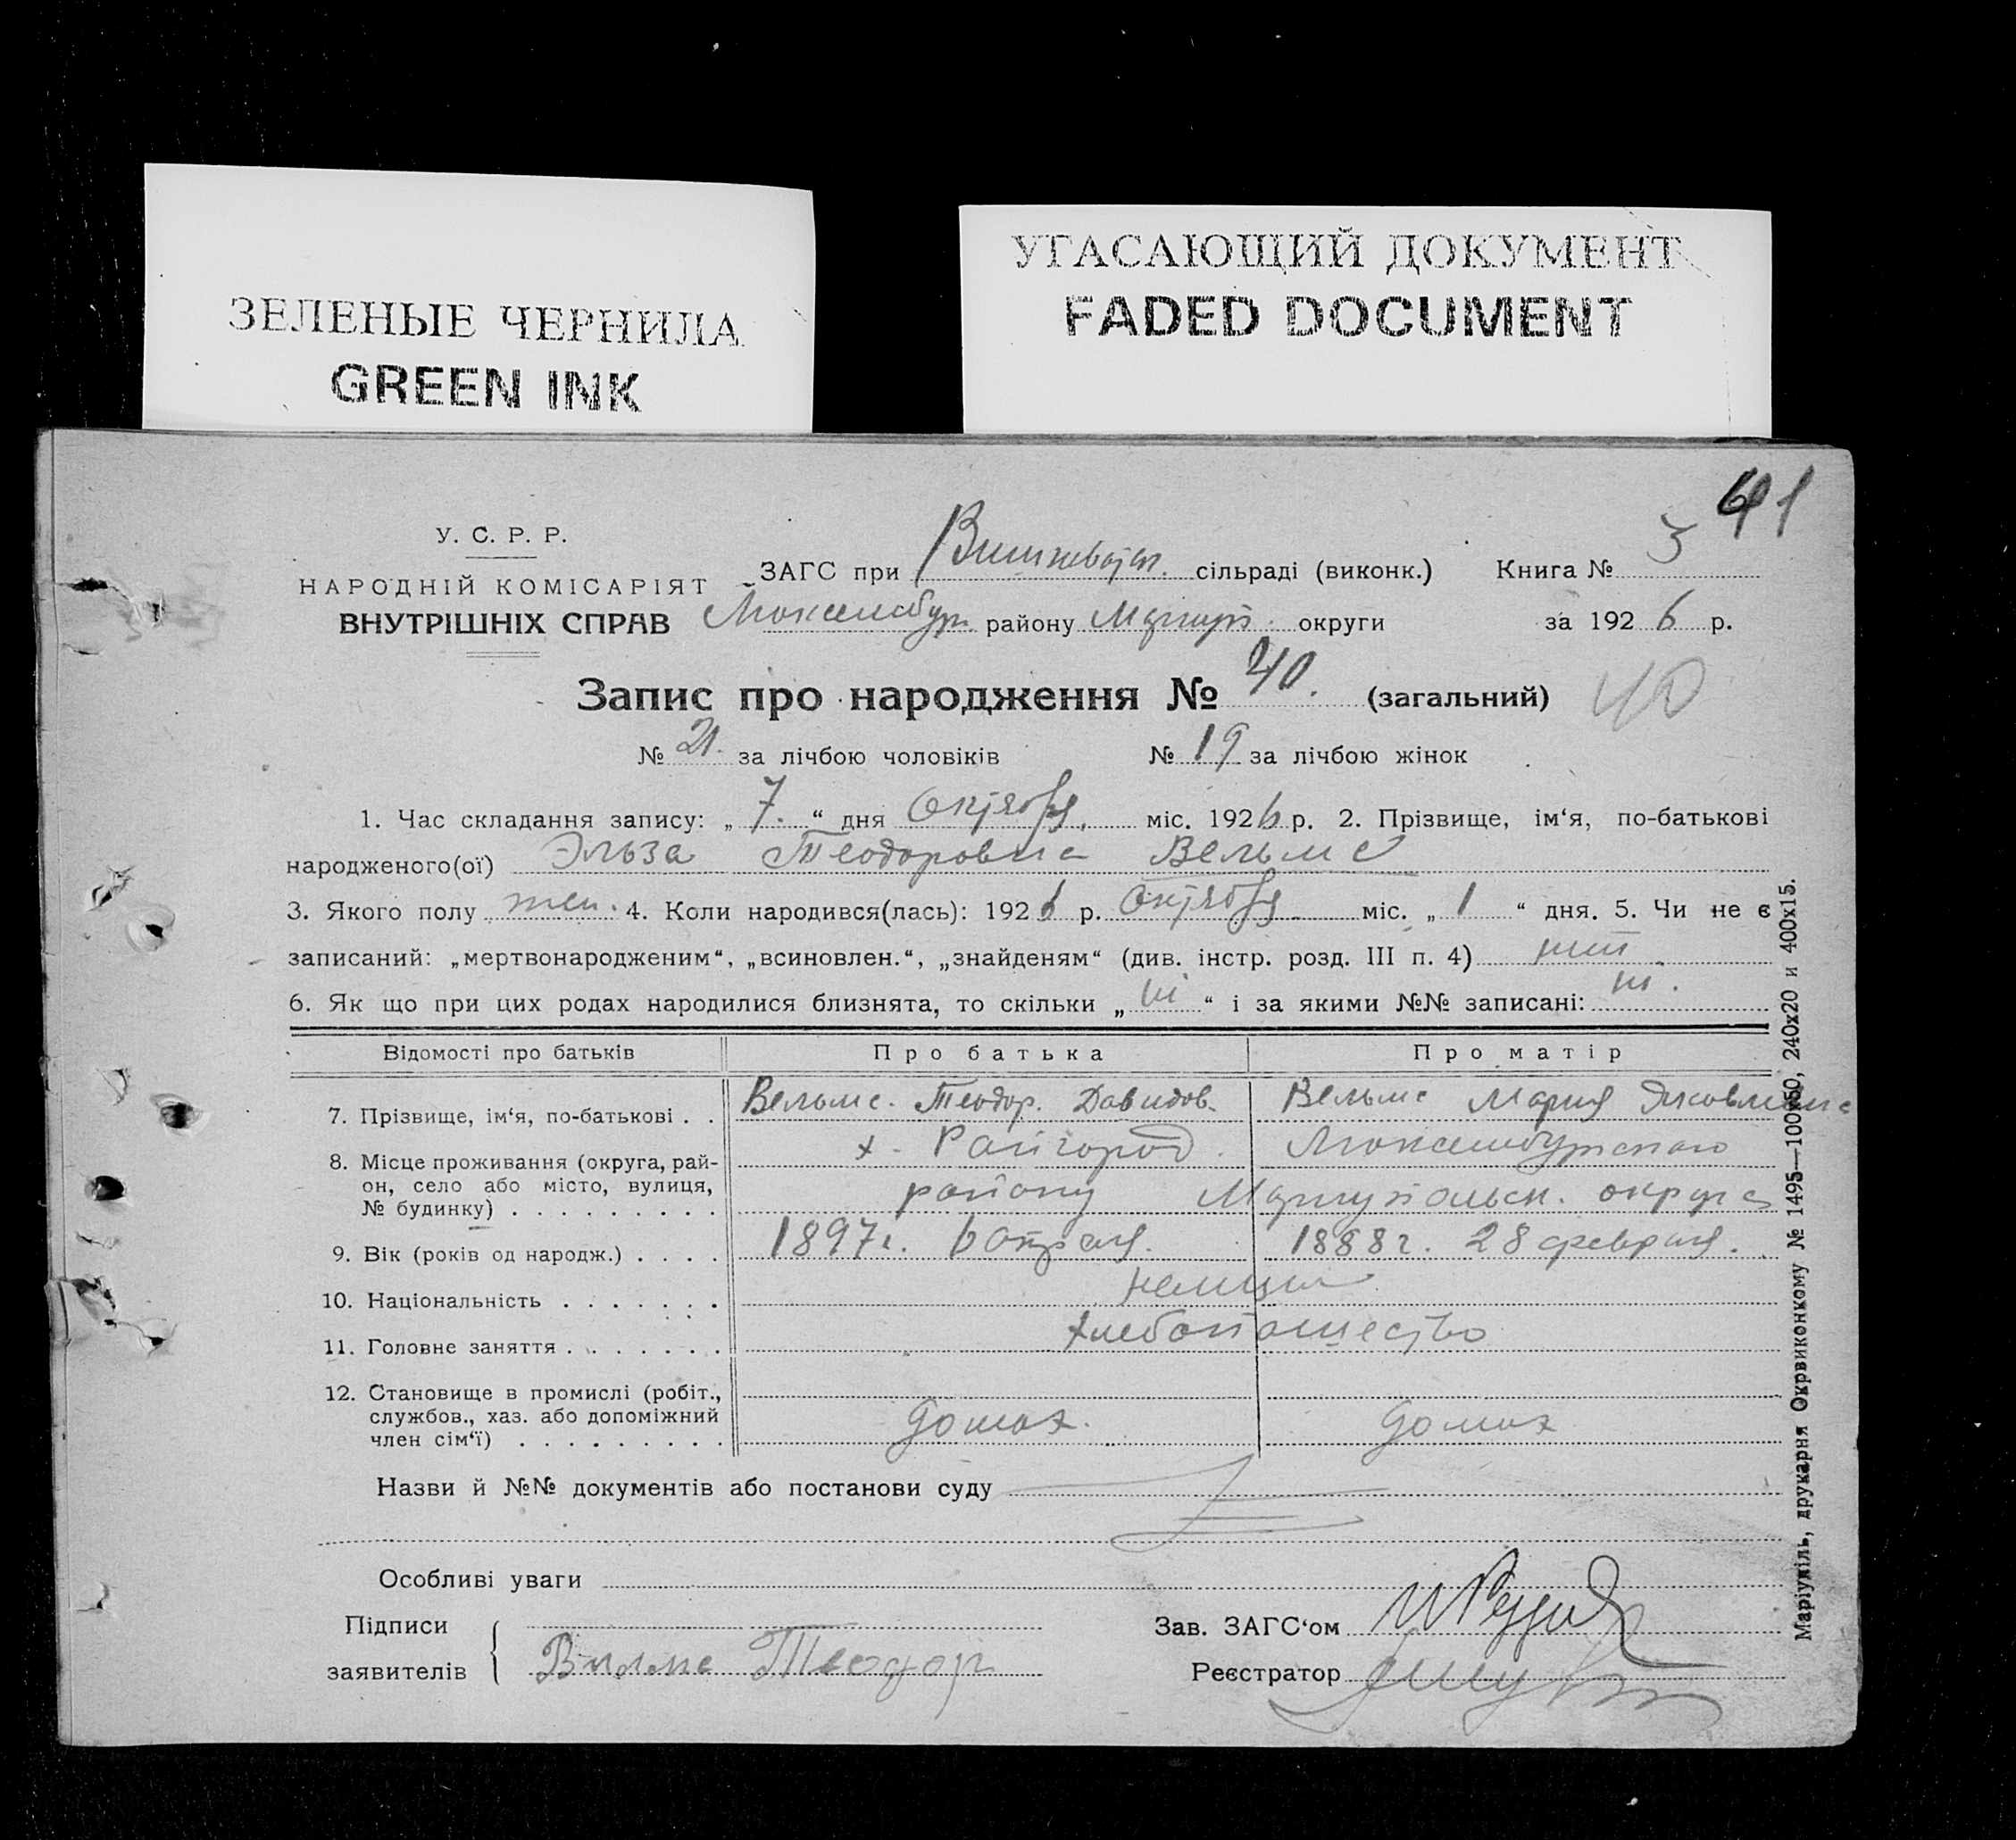 ЗЕЛЕНЫЕ ЧЕРНИЛА
GREEN INK
УГАСАЮЩИЙ ДОКУМЕНТ
FADED DOCUMENT
41
У. С. Р. Р.
НАРОДНІЙ КОМІСАРІЯТ
ВНУТРІШНІХ СПРАВ
ЗАГС при сільраді (виконк.) Книга № 3
Люксембур. району Маріуп. округи за 1926 р.
Запис про народження № 40. (загальний) 40
№ 21. за лічбою чоловіків № 19 за лічбою жінок
1. Час складання запису: „7.“ дня Октября міс. 1926 р. 2. Прізвище, ім‘я, по-батькові
народженого(ої) Эльза Теодоровна Вельмс
3. Якого полу жен. 4. Коли народився(лась): 1926 р. Октября міс. „1“ дня. 5. Чи не є
записаний: „мертвонародженим“, „всиновлен.“, „знайденям“ (див. інстр. розд. III п. 4)
6. Як що при цих родах народилися близнята, то скільки „ні“ і за якими №№ записані: ні.
Відомості про батьків Про батька Про матір
7. Прізвище, ім‘я, по-батькові . . Вельмс. Теодор. Давидов. Вельмс Мария Яковлевна
8. Місце проживання (округа, рай-он, село або місто, вулиця, № будинку) . . . . . . . . . х. Райгород. Люксембургского
району Мариупольск. округа
9. Вік (років од народж.) . . . . 1897г. 6 апреля. 1888г. 28 февраля.
10. Національність . . . . . . . немцы
11. Головне заняття . . . . . . . хлебопашество
12. Становище в промислі (робіт.,
службов., хаз. або допоміжний
член сім‘ї) . . . . . . . . . домох. домох
Назви й №№ документів або постанови суду
Особливі уваги
Підписи
заявителів Вилмс Теодор
Зав. ЗАГС‘ом
Реєстратор
Маріупіль, друкарня Окрвиконкому № 1495—100х50, 240х20 и 400х15.